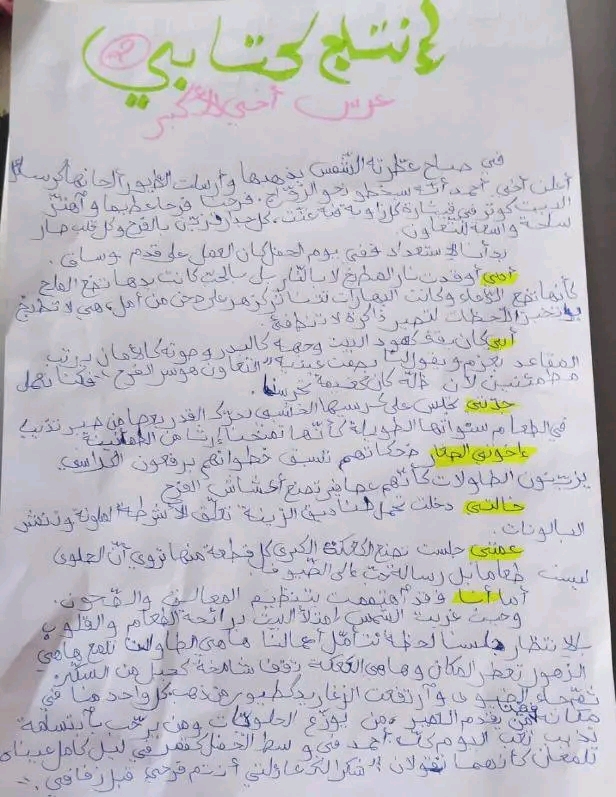 إنتاج كتابي
عرس أخي الأكبر
في صباح عطرته الشمس بذهبها وأرسلت الطيور ألحانها كرسائل
أعلن أخي أحمد أنه سيخطو نحو الزواج. فرحنا فرحا عظيما واهتز
البيت كوتر في قيثارة كل زاوية فيه غنت، كل جدار تزين بالفرح وكل قلب صار
ساحة واسعة للتعاون
بدأنا الاستعداد ففي يوم الحفل كان العمل على قدم وساق.
أمي أوقدت نار المطبخ لا بالنار بل بالحب كانت يدها تضع الملح
كأنها تضع الدعاء وكانت البهارات تتناثر كزهر على صحن من أمل، هي لا تطبخ
بل تخبز اللحظات لتصير ذاكرة لا تنطفئ.
أبي كان يقف كعمود البيت وجهه كالبدر وصوته كالأمان يرتب
المقاعد بعزم ويقول لنا بصمت عينيه "التعاون هو سر الفرح" فكنا نعمل
مطمئنين لأن ظله كان كغيمة تحرسنا.
جدتي تجلس على كرسيها الخشبي تحرك القدر بعصا من صبر تذيب
في الطعام سنواتها الطويلة كأنها تمنحنا إرثا من الطمأنينة
إخوتي الصغار ضحكاتهم تسبق خطواتهم يرفعون الكراسي
يزينون الطاولات كأنهم عصافير تصنع أعشاش الفرح
خالتي دخلت تحمل صناديق الزينة تعلق الأشرطة الملونة وتنفش
البالونات.
عمتي جلست تصنع الكعكة الكبرى كل قطعة منها تروي أن الحلوى
ليست طعاما بل رسالة حب إلى الضيوف.
أما أنا فقد اهتممت بتنظيم المعاليق والصحون
وحين غربت الشمس امتلأ البيت برائحة الطعام والقلوب
بالانتظار جلسنا لحظة نتأمل أعمالنا ها هي الطاولات تلمع ها هي
الزهور تعطر المكان وها هي الكعكة تقف شامخة كجبل من السكر
ثم جاء الضيوف وارتفعت الزغاريد كطيور مذهبة كل واحد منا في
مكانه فمن يقدم العصير ومن يوزع الحلويات ومن يرحب بابتسامة
تذيب تعب اليوم كله أحمد في وسط الحفل كقمر في ليل كامل عيناه
تلمعان كأنهما تقولان "شكرا لك عائلتي أنتم فرحي قبل زفافي."